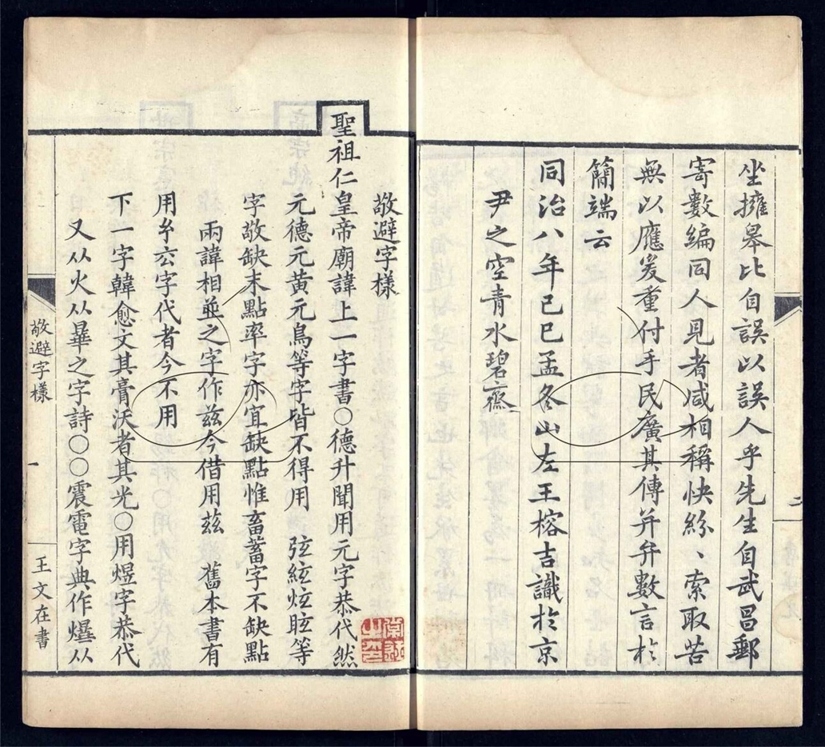 坐擁皋比自誤以誤人乎先生自武昌郵
寄數編同人見者咸相稱快紛、索取苦
無以應爰重付手民廣其傳并弁數言於
簡端云
同治八年己巳孟冬山左王榕吉識於京
尹之空青水碧齋
二
敬避字樣
聖祖仁皇帝廟諱上一字書〇德升聞用元字恭代然
元德元黃元鳥等字皆不得用 弦絃炫眩等
字敬缺末點率字亦宜缺點惟畜蓄字不缺點
兩諱相並之字作玆今借用茲 舊本書有
用纟六字代者今不用
下一字韓愈文其膏沃者其光〇用煜字恭代
又从火从畢之字詩〇〇震電字典作爗从
敬避字樣
一
王文在書